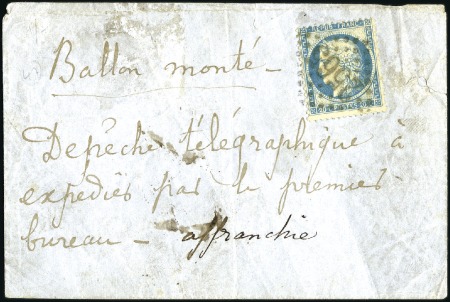 Ballon monté –
Depêche télégraphique à
expédiés par le premier
bureau – affranchie